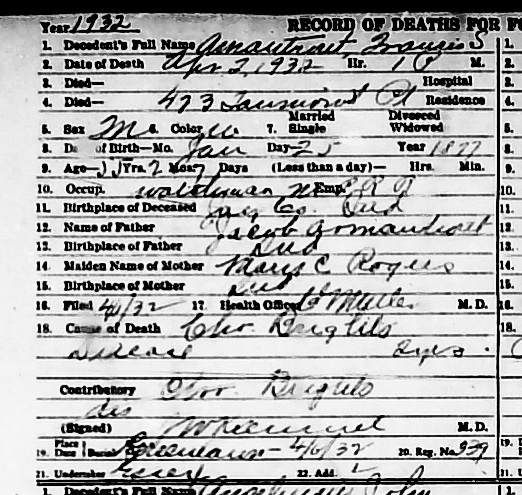 Year 1932 RECORD OF DEATHS FOR F
1. Decedent's Full Name Armantrout Francis S
2. Date of Death Apr 2, 1932 Hr. 1 P M.
3. Died— Hospital
4. Died— 473 Ct Residence
5. Sex Ma Color w 7. Married Single Divorced Widowed
8. Da of Birth—Mo. Jan Day 25 Year 1877
9. Age—55 Yrs. 2 Mos. 7 Days (Less than a day)— Hrs. Min.
10. Occup. watchman Emp. R R
11. Birthplace of Deceased Jay Co. Ind
12. Name of Father Jacob Armantrout
13. Birthplace of Father Ind
14. Maiden Name of Mother Mary C Rogers
15. Birthplace of Mother Ind
16. Filed 4/ /32 17. Health Officer Miller M. D.
18. Cause of Death Chr Brights
Disease 2 yrs.
Contributory Chr Brights
dis
(Signed) M. D.
19. Place Date Burial 4/6/32 20. Reg. No. 939
21. Undertaker 22. Add.
1. Decedent's Full Name John